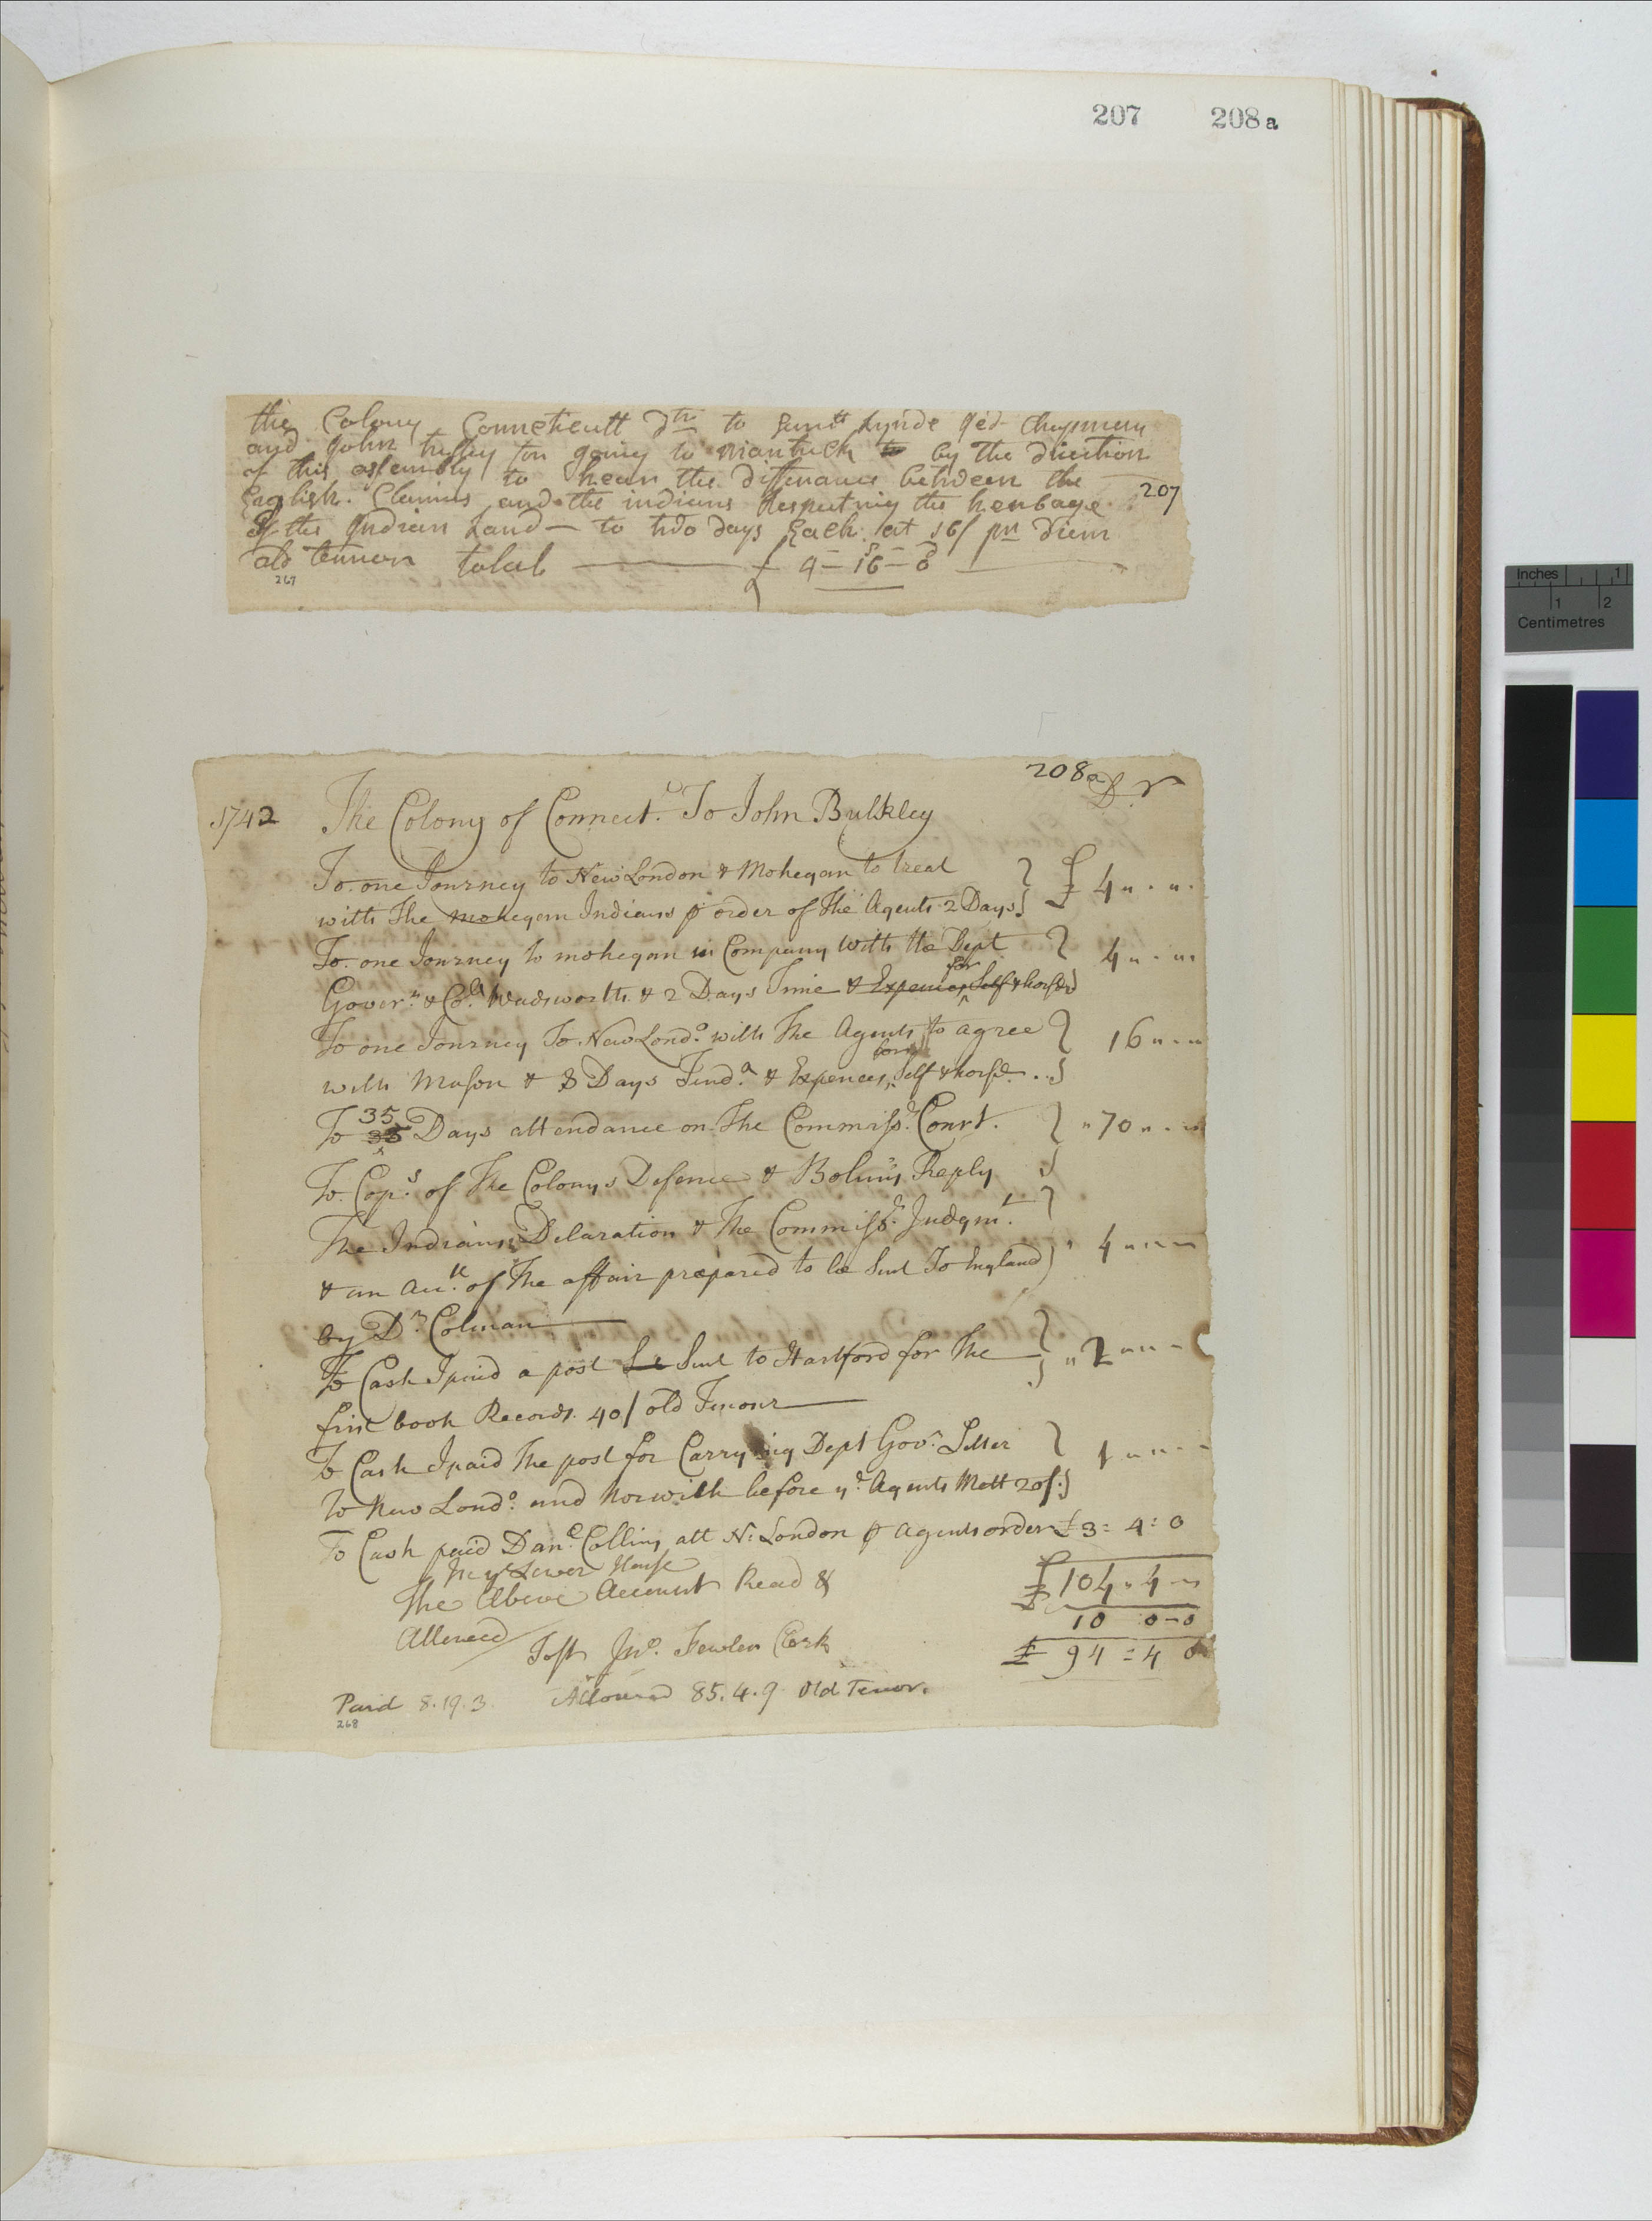 207 208a
the Colony Connecticutt Dtr to Samll Lynde Ged Chapman
and John tully for going to niantick to by the direction
of this assembly to hear the differance between the
English Claimes and the indians Respecting the herbage
207
of the Indian Land — to two days Each at 16/ pr diem
old tennor total £ 4–16–0
267
208a
Dr
1742 The Colony of Connect. To John Bulkley
To one Journey to New London & Mohegan to treat £ 4
with The mohegan Indians p order of the Agents 2 Days
To one Journey to mohegan in Company with the Dept 4
Goverr & Coll Wadsworth & 2 Days Time & Expences for Self & horse
To one Journey To New Londo with The Agents to agree 16
with Mason & 8 Days & Expences Self & horse
35
To 35 Days attendance on The Commissr Court. 70
To Cops of The Colonys Defence & Bolins Reply
The Indians Delaration & The Commissr Judgmt
& an acctt of The affair prepared to be Sent To England 4
by Dr Colman
To Cash I paid a post Sent to Hartford for The 2
first book Records 40/ old Tenour
To Cash I paid The post for Carrying Dept Govr Letter 1
to New Londo and Norwich before ye Agents Mett 20/
To Cash paid Danel Collins att N: London p Agents order £3: 4: 0
In ye Lower House
The Above Account Read & £104 4
Allowed 10 0–0
Test Jno. Fowler Clerk £ 94 = 4 0
Paid 8.19.3. Allowed 85.4.9 Old Tenor.
268
Inches 1
1 2
Centimetres